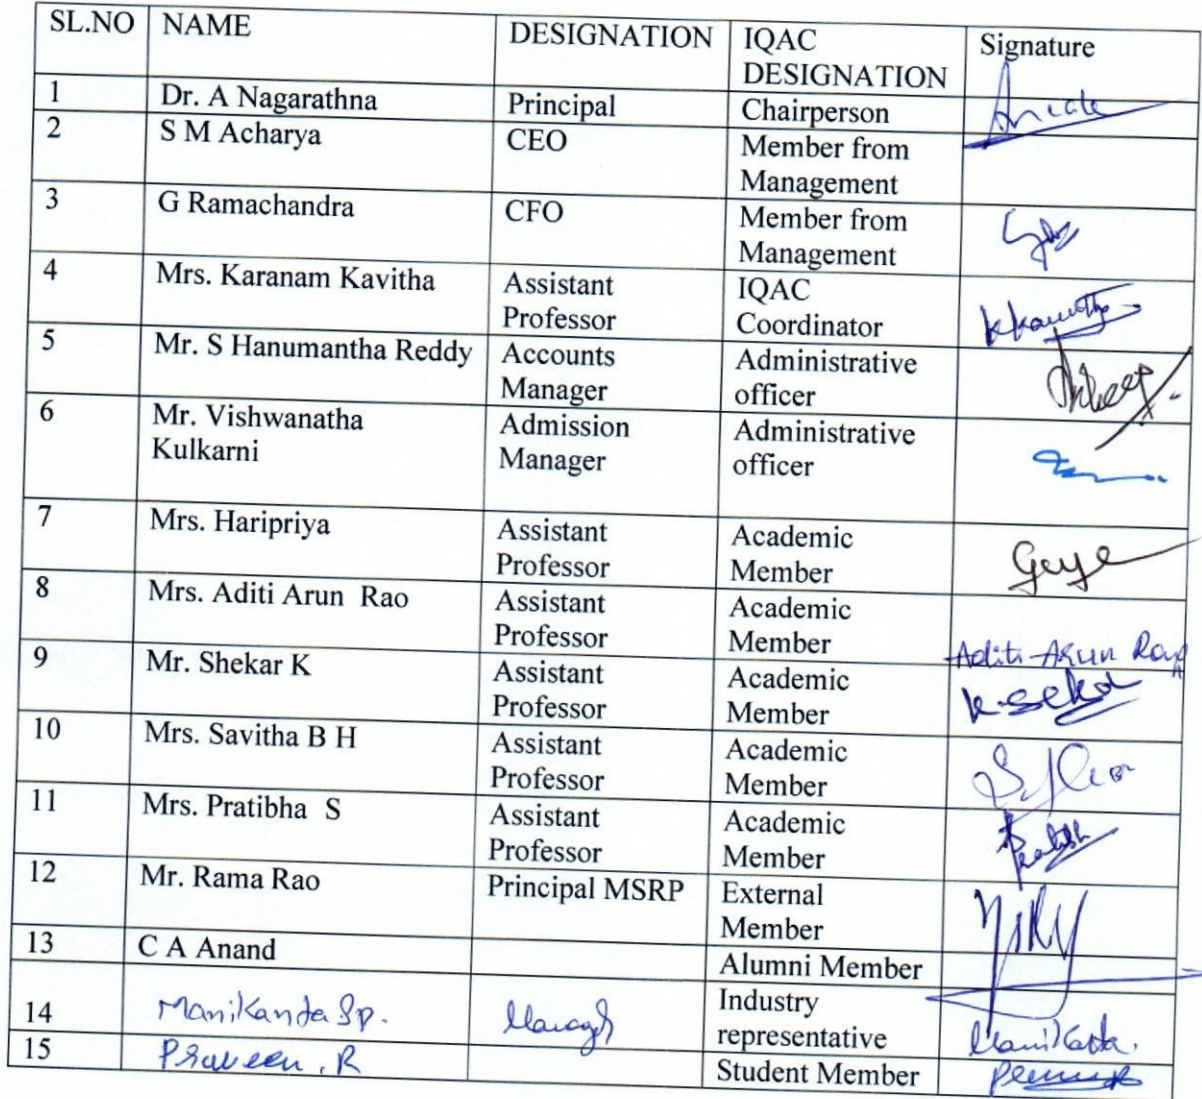 SL.NO NAME DESIGNATION IQAC DESIGNATION Signature
1 Dr. A Nagarathna Principal Chairperson
2 S M Acharya CEO Member from Management
3 G Ramachandra CFO Member from Management
4 Mrs. Karanam Kavitha Assistant Professor IQAC Coordinator
5 Mr. S Hanumantha Reddy Accounts Manager Administrative officer
6 Mr. Vishwanatha Kulkarni Admission Manager Administrative officer
7 Mrs. Haripriya Assistant Professor Academic Member
8 Mrs. Aditi Arun Rao Assistant Professor Academic Member Aditi Arun Rao
9 Mr. Shekar K Assistant Professor Academic Member
10 Mrs. Savitha B H Assistant Professor Academic Member
11 Mrs. Pratibha S Assistant Professor Academic Member
12 Mr. Rama Rao Principal MSRP External Member
13 C A Anand Alumni Member
14 Manikanda Sp. Industry representative
15 Praveen . R Student Member